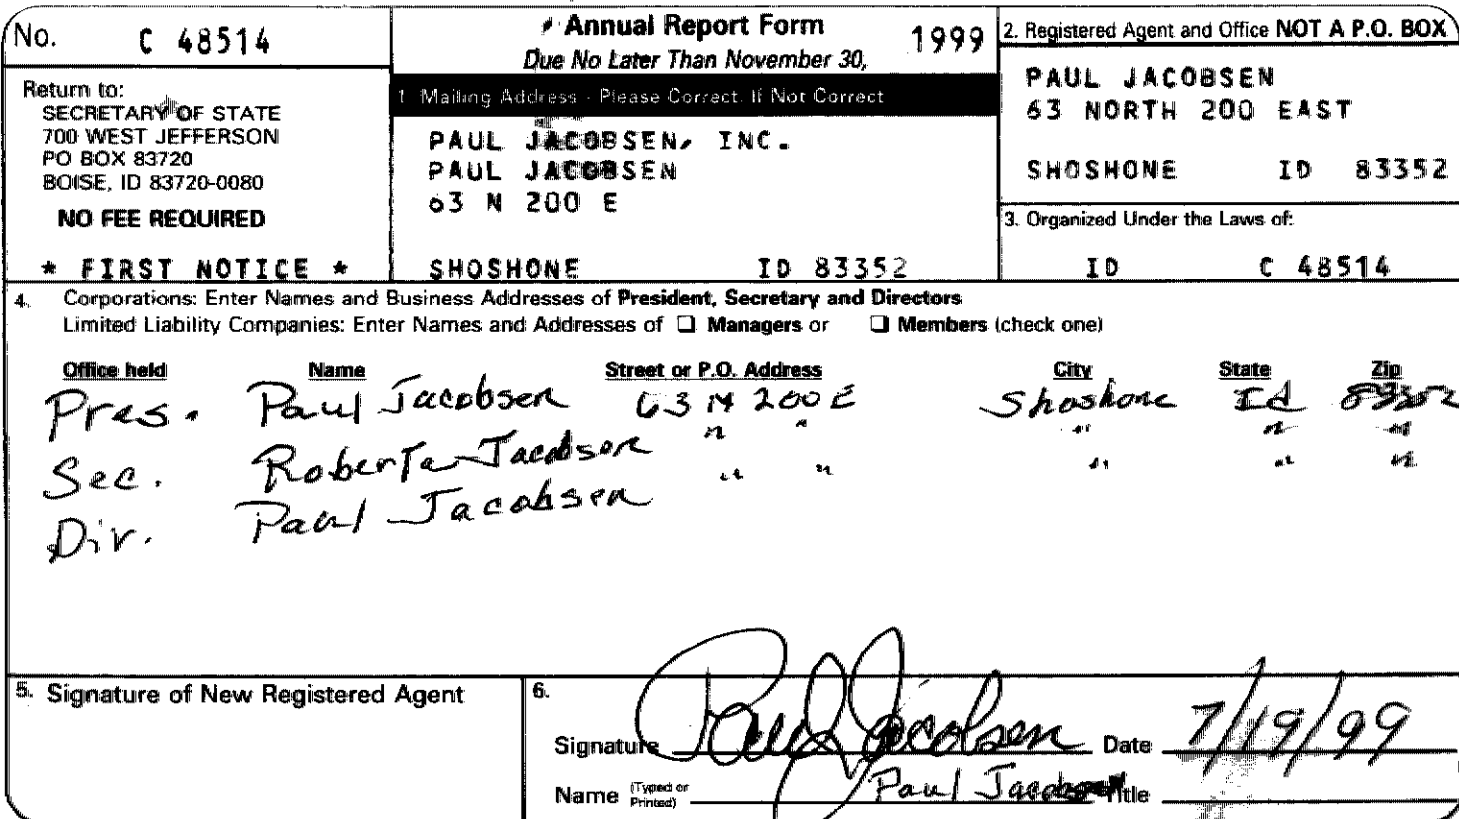 No. C 48514
Return to:
SECRETARY OF STATE
700 WEST JEFFERSON
PO BOX 83720
BOISE, ID 83720-0080
NO FEE REQUIRED
* FIRST NOTICE *
Annual Report Form 1999
Due No Later Than November 30,
1 Mailing Address - Please Correct, If Not Correct
PAUL JACOBSEN, INC.
PAUL JACOBSEN
63 N 200 E
SHOSHONE ID 83352
2. Registered Agent and Office NOT A P.O. BOX
PAUL JACOBSEN
63 NORTH 200 EAST
SHOSHONE ID 83352
3. Organized Under the Laws of:
ID C 48514
4. Corporations: Enter Names and Business Addresses of President, Secretary and Directors
Limited Liability Companies: Enter Names and Addresses of ☐ Managers or ☐ Members (check one)
Office held Name Street or P.O. Address City State Zip
Pres. Paul Jacobsen 63 N 200 E Shoshone Id 83352
Sec. Roberta Jacobsen " " " " "
Div. Paul Jacobsen " " " " "
5. Signature of New Registered Agent
6.
Signature Paul Jacobsen Date 7/19/99
Name (Typed or Printed) Paul Jacobsen Title